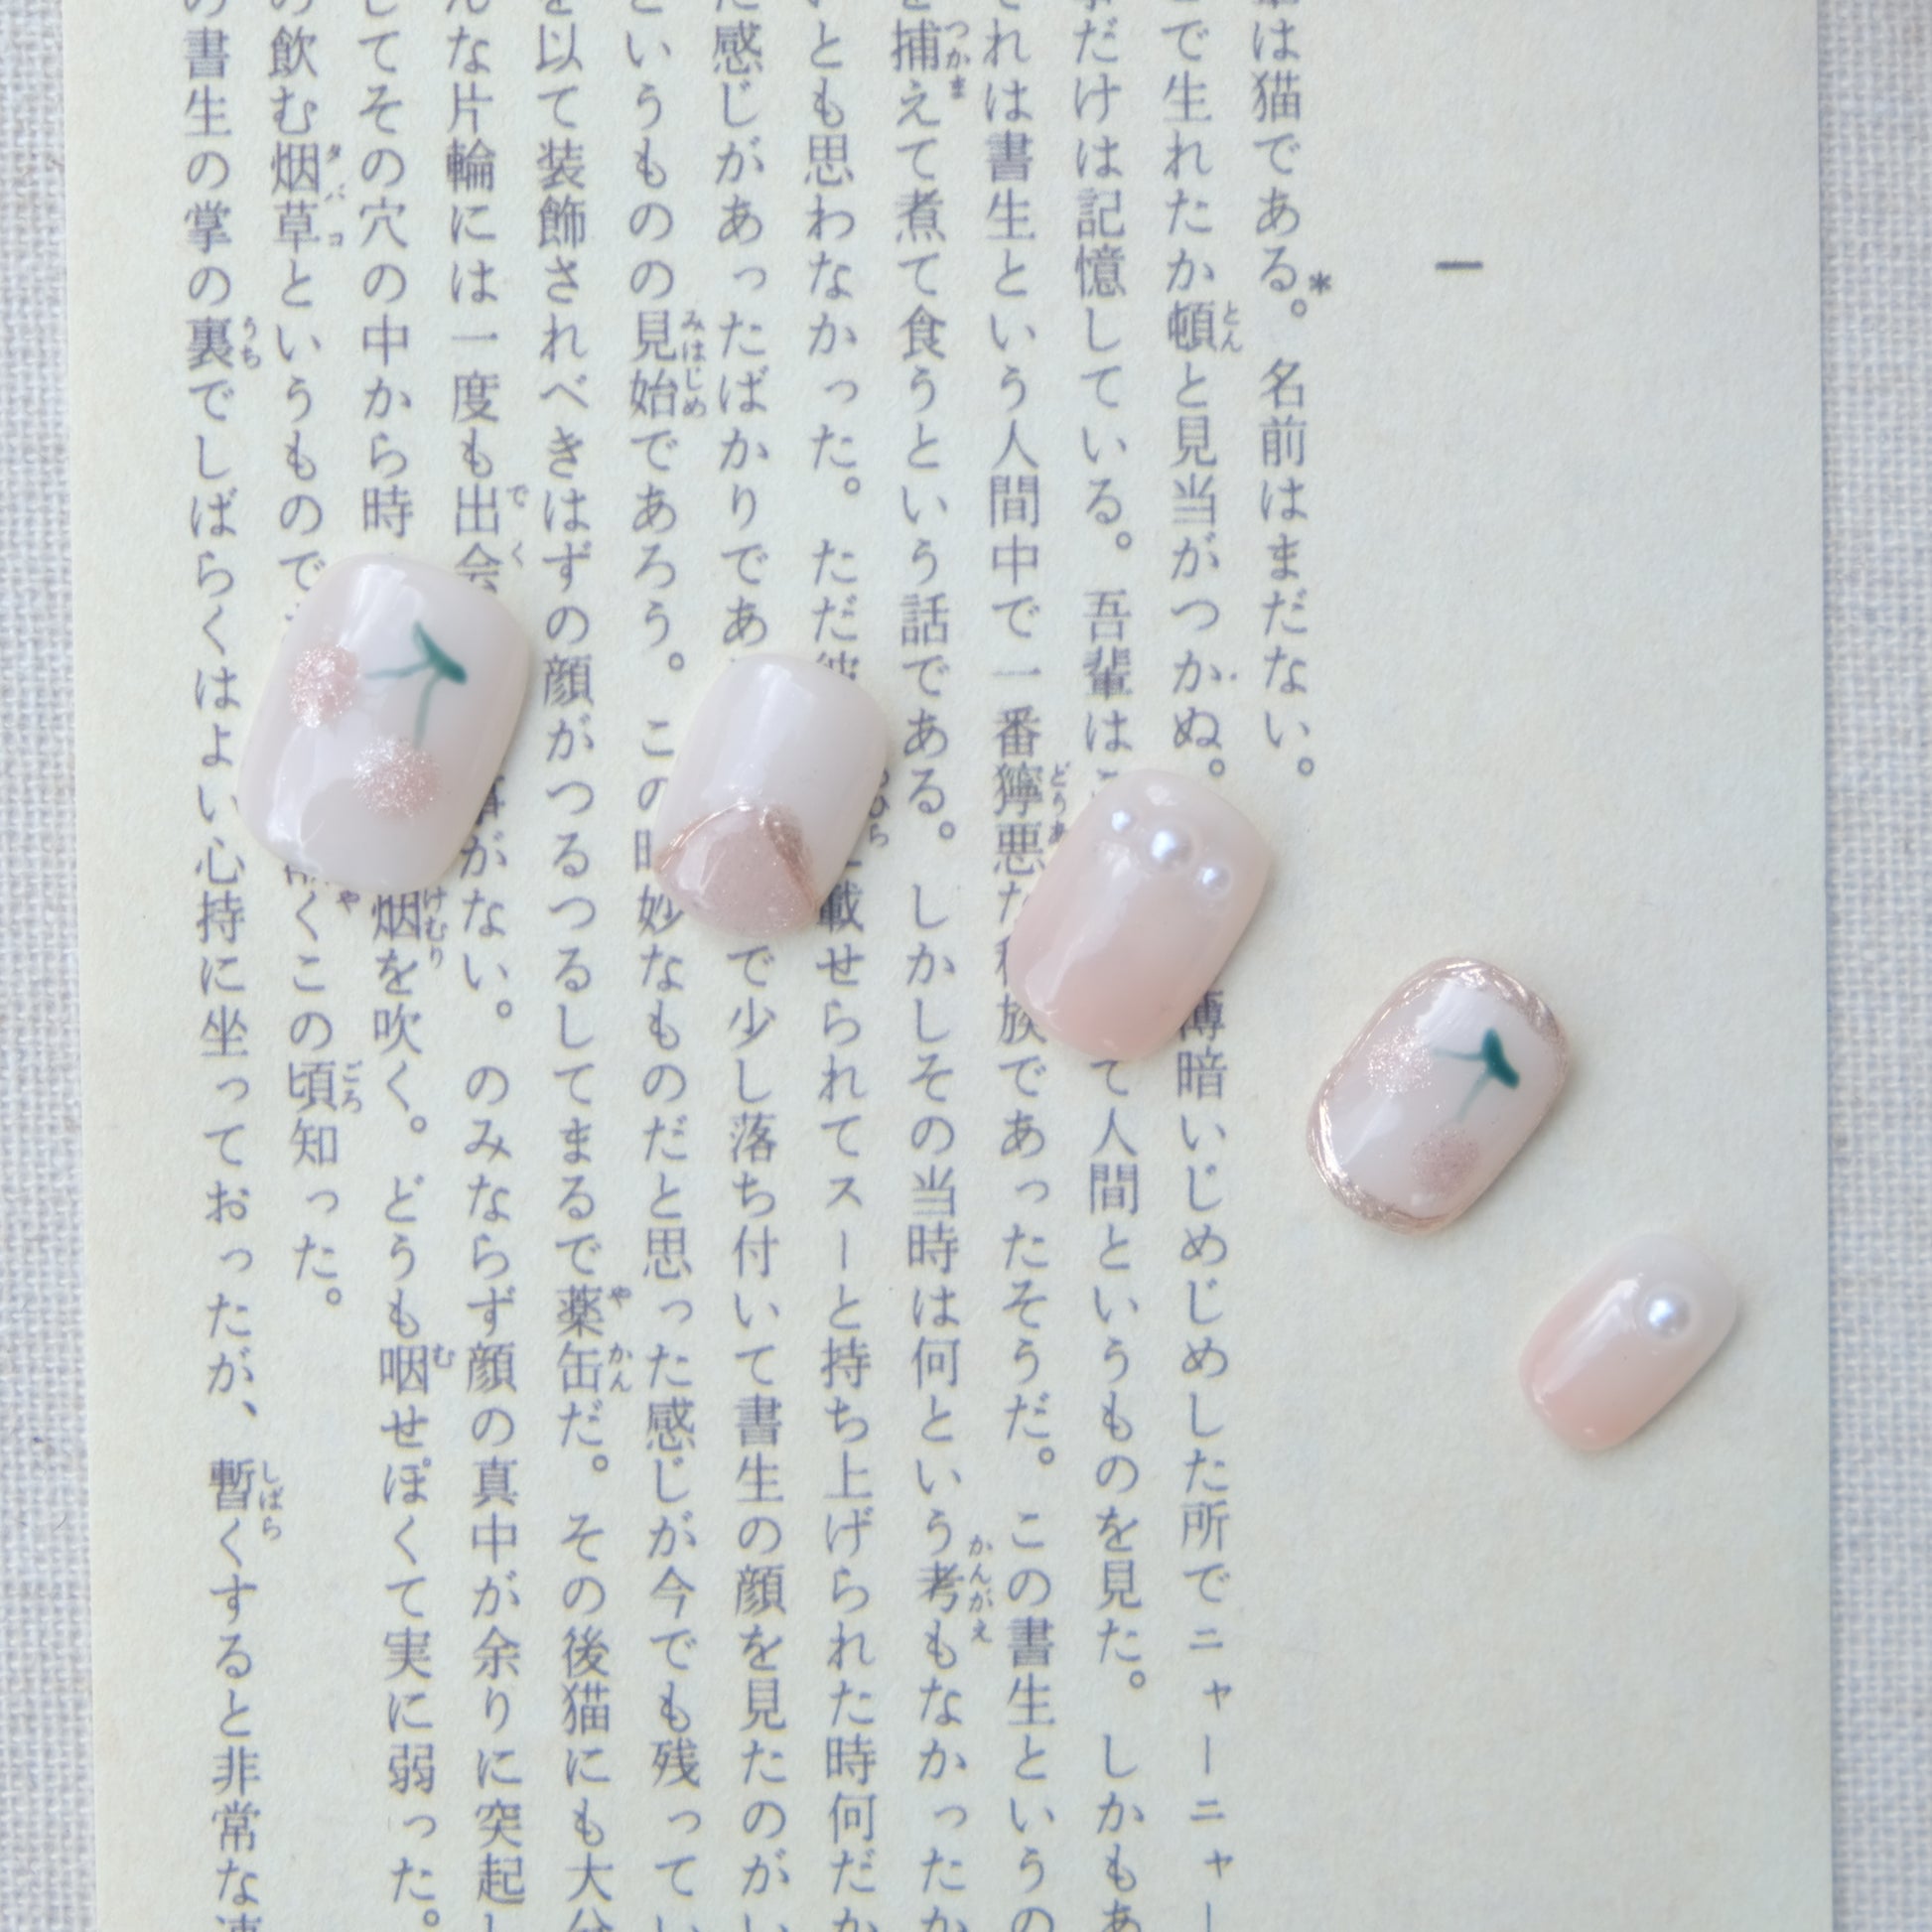 一
は猫である。*名前はまだない。
で生れたか頓と見当がつかぬ。暗いじめじめした所でニャーニャー
とん
だけは記憶している。吾輩は て人間というものを見た。しかもあ
れは書生という人間中で一番獰悪な 族であったそうだ。この書生というの
どうあ
捕えて煮て食うという話である。しかしその当時は何という考もなかったか
つかま
かんがえ
とも思わなかった。ただ 載せられてスーと持ち上げられた時何だか
ひら
感じがあったばかりであ で少し落ち付いて書生の顔を見たのがい
というものの見始であろう。この 妙なものだと思った感じが今でも残ってい
みはじめ
以て装飾されべきはずの顔がつるつるしてまるで薬缶だ。その後猫にも大
やかん
な片輪には一度も出会 がない。のみならず顔の真中が余りに突起し
でく
してその穴の中から時 烟を吹く。どうも咽せぽくて実に弱った。
けむり
む
の飲む烟草というもので くこの頃知った。
タバコ
や
ごろ
の書生の掌の裏でしばらくはよい心持に坐っておったが、暫くすると非常な
うち
しばら